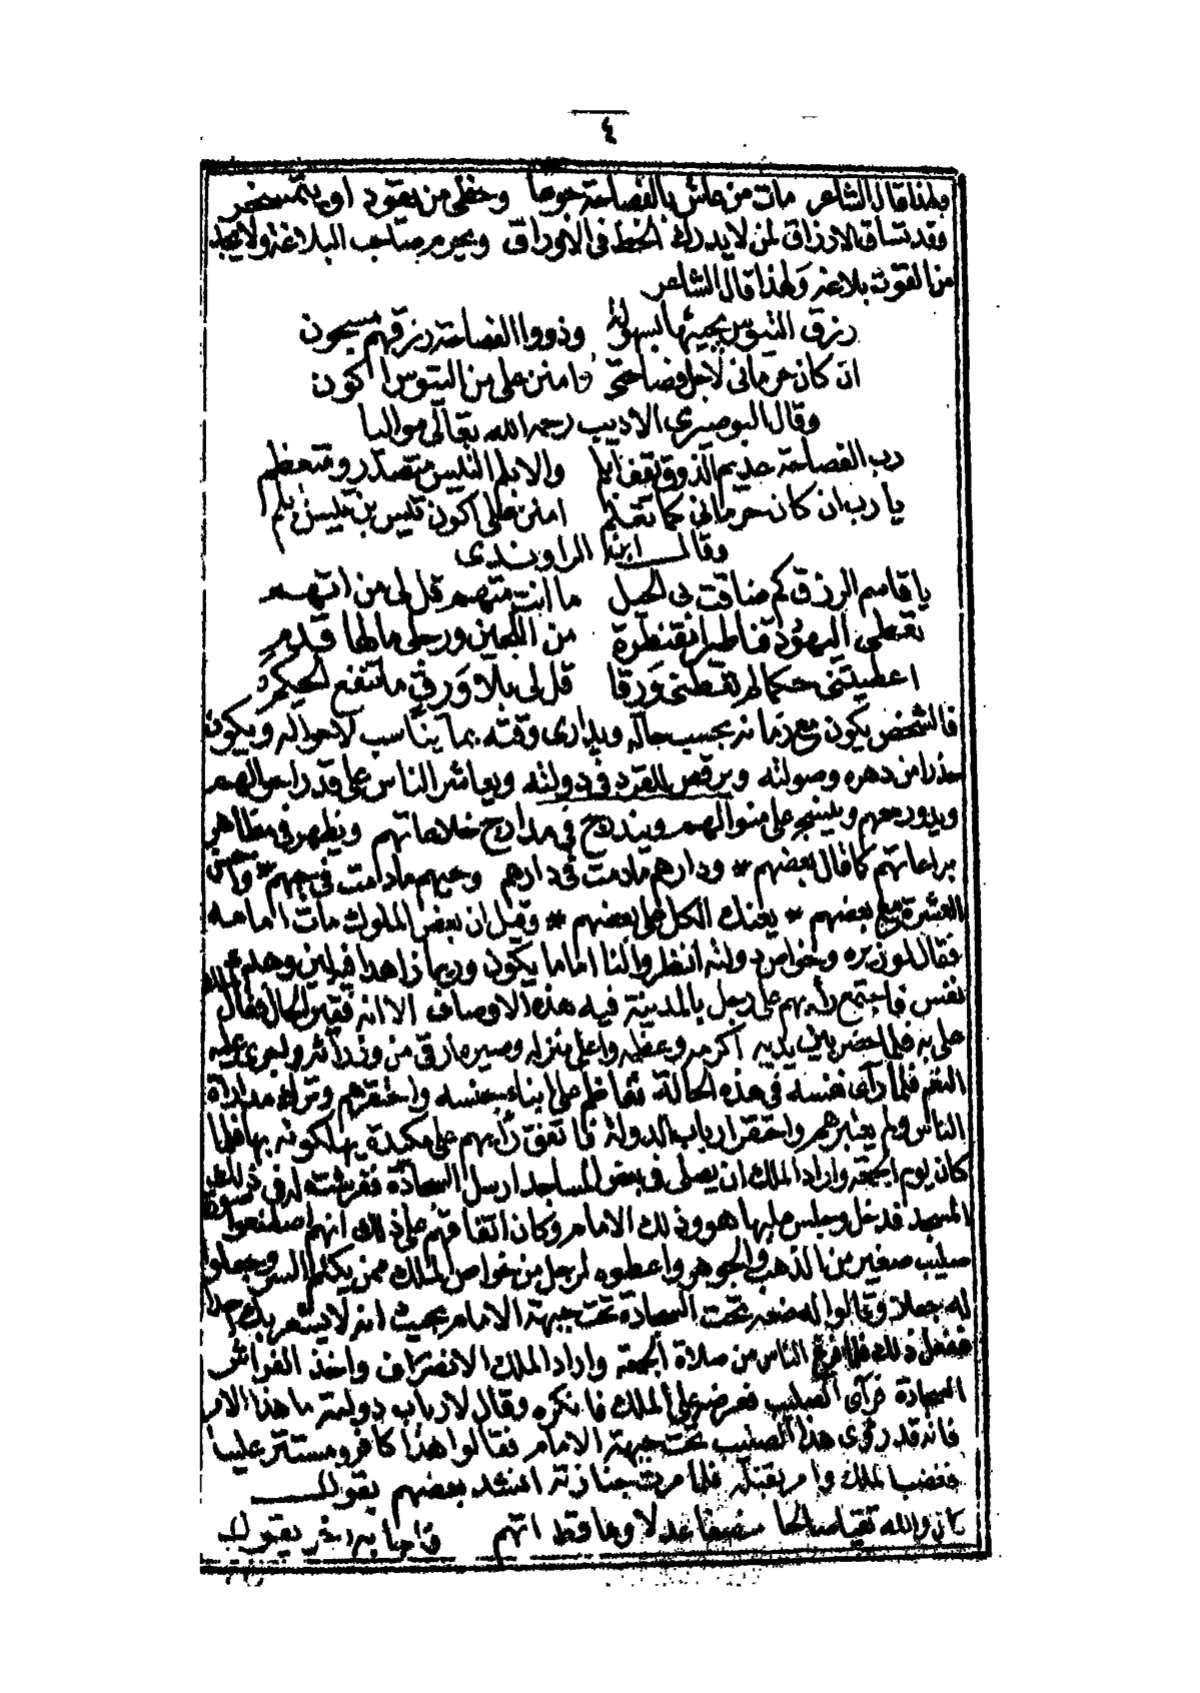 ٤
ولهذا قال الشاعر مات من عاش بالفصاحة جوعا وحظى من يقود او يتمسخر
وقد تساق الارزاق لمن لا يدرك الخط فى الاوراق ويحرم صاحب البلاغة ولا يجد
من القوت بلاغه ولهذا قال الشاعر
رزق التيوس يجيئها بسهولة وذووا الفصاحة رزقهم مسجون
ان كان حرمانى لاجل فصاحتى امنن على من التيوس اكون
وقال البوصيرى الاديب رحمه الله تعالى مواليا
رب الفصاحة عديم الذوق تقف ايلم والابلم التيس متصدر ومتعظم
يا رب ان كان حرمانى كما تعلم امنن على اكون تيس بن تيس ابلم
وقال ابن الراوندى
يا قاسم الرزق كم ضاقت بى الحيل ما انت متهم قل لى من اتهم
تعطى اليهود قناطيرا مقنطرة من اللجين ورجلى مالها قدم
اعطيتنى حكما لم تعطنى ورقا قل لى بلا ورق ما تنفع الحكم
فالشخص يكون مع زمانه بحسب حاله ويدارى وقته بما يناسب لاحواله ويكون
حذرا من دهره وصولته ويرقص للقرد فى دولته ويعاشر الناس على قدر احوالهم
ويدور معهم وينسج على منوالهم ويندرج فى مدارج خلاعاتهم ويظهر فى مظاهر
براعاتهم كما قال بعضهم * ودارهم مادمت فى دارهم وحيهم مادامت فى حيهم * واحسن
العشرة مع بعضهم * يعنك الكل على بعضهم * وقيل ان بعض الملوك مات امامه
فقال لوزيره وخواص دولته انظروا لنا اماما يكون ورعا زاهدا فى لين وهدو
نفس فاجتمع رأيهم على رجل بالمدينة فيه هذه الاوصاف الا انه فقير الحال فقال الملك
على به فلما حضر بين يديه اكرمه وعظمه واعلى منزله وصيره ارقى من وزرائه واجرى عليه
النعم فلما رآى نفسه فى هذه الحالة تعاظم على ابناء جنسه واحتقرهم وترك مداراة
الناس ولم يعتبرهم واحتقر ارباب الدولة فاتفق رأيهم على مكيدة يهلكونه بها فلما
كان يوم الجمعة واراد الملك ان يصلى فى بعض المساجد ارسل السجادة ففرشت له فى ذلك
المسجد فدخل وجلس عليها هو وذلك الامام وكان اتفاقهم على ذلك انهم اصطنعوا
صليب صغير من الذهب والجوهر واعطوه لرجل من خواص الملك ممن يكتم السر وجعلوا
له جعلا وقالوا له ضعه تحت السجادة تحت جبهة الامام بحيث انه لا يشعر بك احدا
ففعل ذلك فلما فرغ الناس من صلاة الجمعة واراد الملك الانصراف واخذ الفراش
السجادة فرآى الصليب فعرضه على الملك فانكره وقال لارباب دولته ما هذا الامر
فانه قد رؤى هذا الصليب تحت جبهة الامام فقالوا هذا كافر ومستتر علينا
فغضب الملك وامر بقتله فلما مرت جنازته انشد بعضهم يقول
كان والله تقيا صالحا منصفا عدلا وما قط اتهم فاجابه آخر يقول